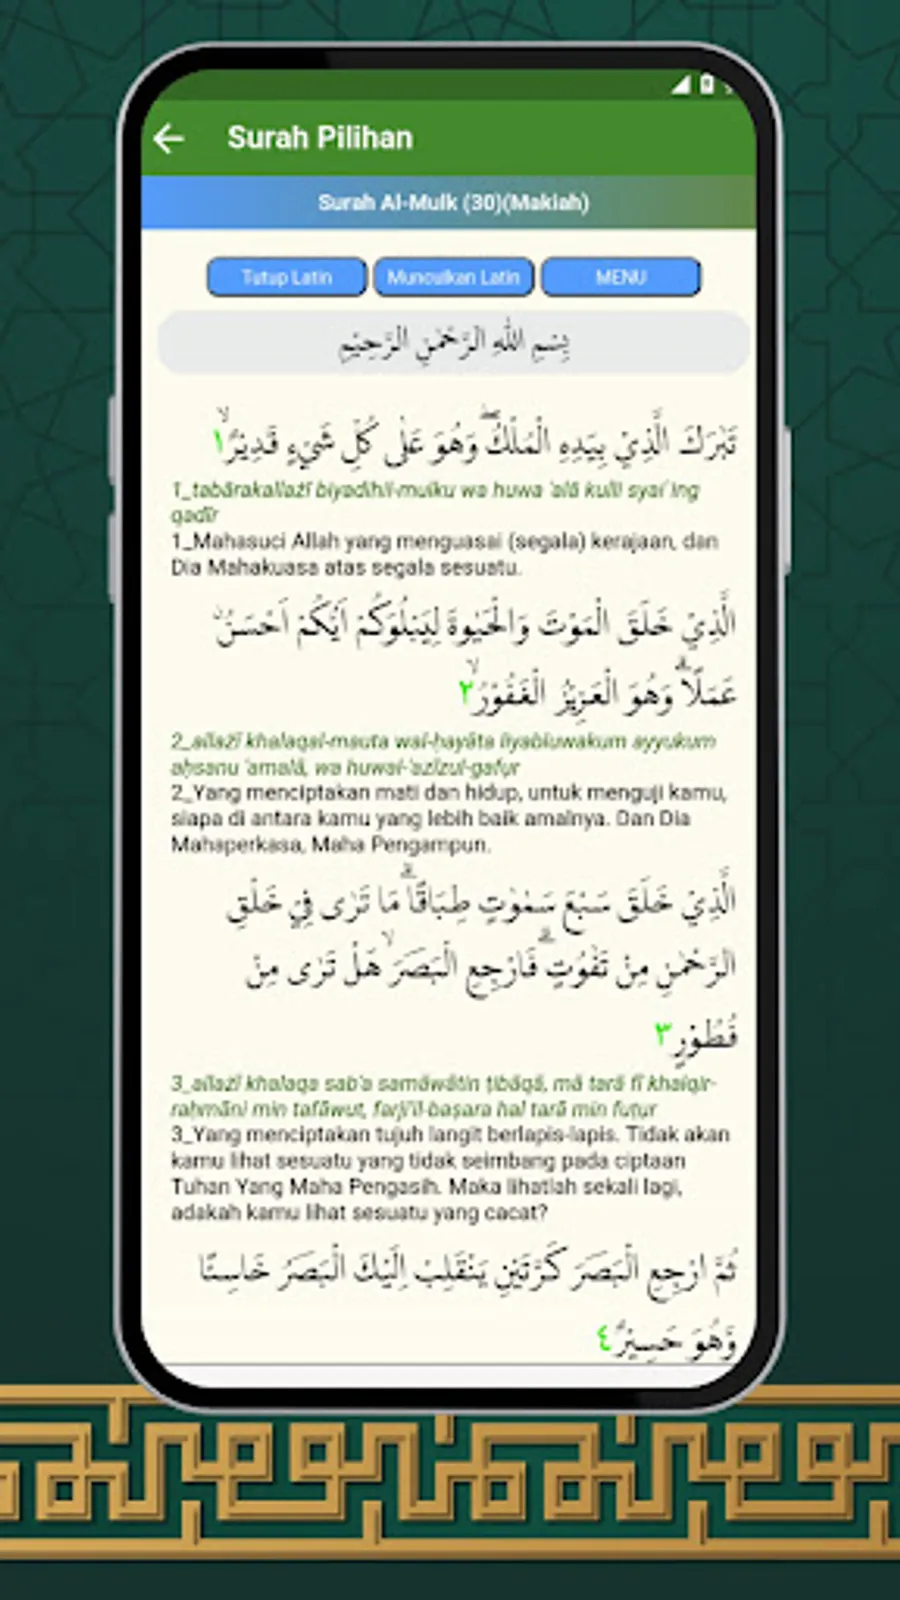 Surah Pilihan
Surah Al-Mulk (30)(Makiah)
Tutup Latin Munculkan Latin MENU
بِسْمِ اللّٰهِ الرَّحْمٰنِ الرَّحِيْمِ
تَبٰرَكَ الَّذِيْ بِيَدِهِ الْمُلْكُۖ وَهُوَ عَلٰى كُلِّ شَيْءٍ قَدِيْرٌۙ ١
1_tabārakallażī biyadihil-mulku wa huwa 'alā kulli syai`ing
qadīr
1_Mahasuci Allah yang menguasai (segala) kerajaan, dan
Dia Mahakuasa atas segala sesuatu.
الَّذِيْ خَلَقَ الْمَوْتَ وَالْحَيٰوةَ لِيَبْلُوَكُمْ اَيُّكُمْ اَحْسَنُ
عَمَلًاۗ وَهُوَ الْعَزِيْزُ الْغَفُوْرُۙ ٢
2_allażī khalaqal-mauta wal-ḥayāta liyabluwakum ayyukum
aḥsanu 'amalā, wa huwal-'azīzul-gafụr
2_Yang menciptakan mati dan hidup, untuk menguji kamu,
siapa di antara kamu yang lebih baik amalnya. Dan Dia
Mahaperkasa, Maha Pengampun.
الَّذِيْ خَلَقَ سَبْعَ سَمٰوٰتٍ طِبَاقًاۗ مَا تَرٰى فِيْ خَلْقِ
الرَّحْمٰنِ مِنْ تَفٰوُتٍۗ فَارْجِعِ الْبَصَرَۙ هَلْ تَرٰى مِنْ
فُطُوْرٍ ٣
3_allażī khalaqa sab'a samāwātin ṭibāqā, mā tarā fī khalqir-
raḥmāni min tafāwut, farji'il-baṣara hal tarā min fuṭụr
3_Yang menciptakan tujuh langit berlapis-lapis. Tidak akan
kamu lihat sesuatu yang tidak seimbang pada ciptaan
Tuhan Yang Maha Pengasih. Maka lihatlah sekali lagi,
adakah kamu lihat sesuatu yang cacat?
ثُمَّ ارْجِعِ الْبَصَرَ كَرَّتَيْنِ يَنْقَلِبْ اِلَيْكَ الْبَصَرُ خَاسِئًا
وَّهُوَ حَسِيْرٌ ٤